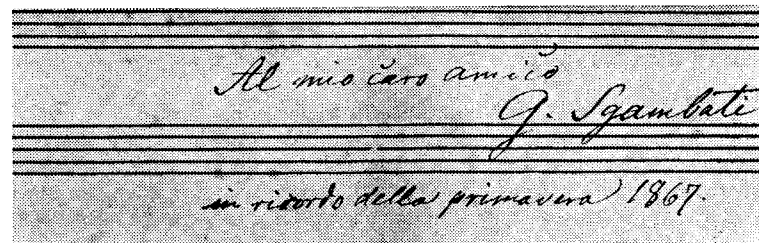 Al mio caro amico
G. Sgambati
in ricordo della primavera 1867.